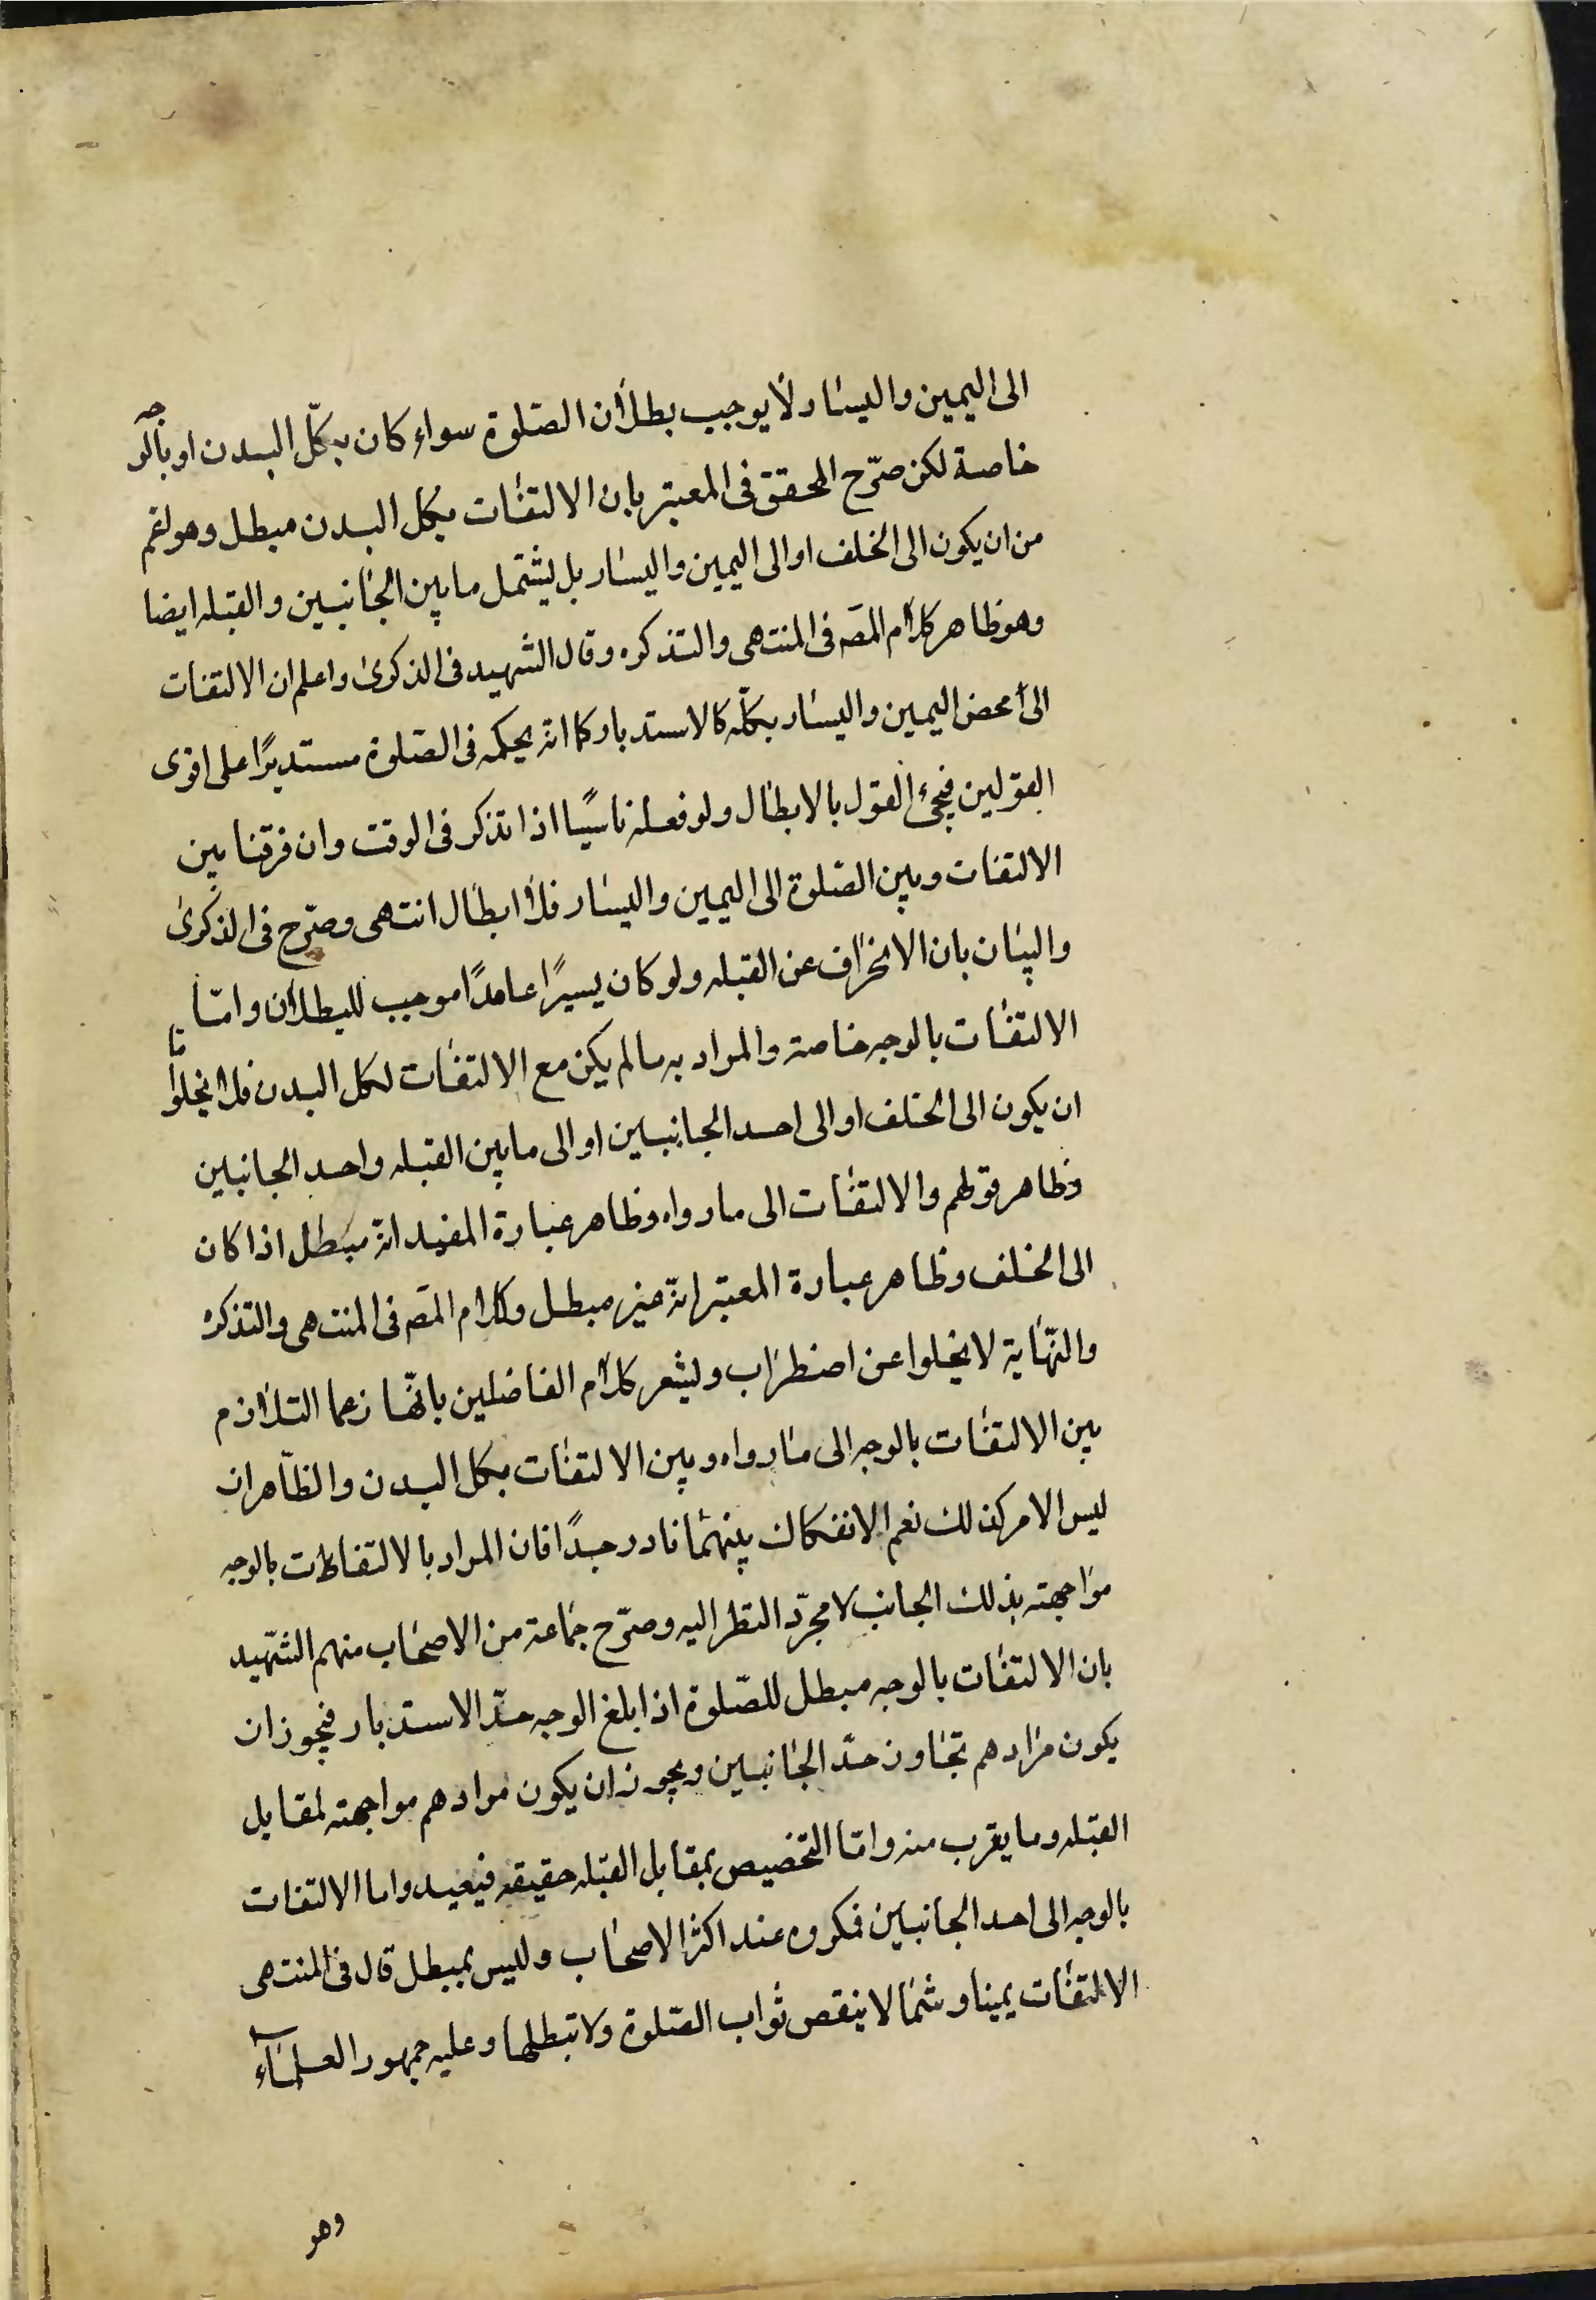 الى اليمين واليسار لا يوجب بطلان الصّلوة سواء كان بكلّ البدن او بالوجه
خاصة لكن صرّح المحقق فى المعتبر بان الالتفات بكل البدن مبطل وهو اعم
من ان يكون الى الخلف او الى اليمين واليسار بل يشتمل ما بين الجانبين والقبله ايضا
وهو ظاهر كلام المصّه فى المنتهى والتذكره وقال الشهيد فى الذكرىٰ واعلم ان الالتفات
الى محض اليمين واليسار بكلّه كالاستدبار كما انه بحكمه فى الصّلوة مستديرًا على اقوى
القولين فيجئ القول بالابطال ولو فعله ناسيًا اذا تذكر فى الوقت وان فرقنا بين
الالتفات وبين الصّلوة الى اليمين واليسار فلا ابطال انتهى وصرّح فى الذكرىٰ
والبيان بان الانحراف عن القبله ولو كان يسيرًا عامدًا موجب للبطلان وامّا
الالتفات بالوجه خاصة والمراد به ما لم يكن مع الالتفات لكل البدن فلا يخلوا اما
ان يكون الى الخلف او الى احد الجانبين او الى ما بين القبله واحد الجانبين
وظاهر قولهم والالتفات الى ما رواه وظاهر عبارة المفيد انه مبطل اذا كان
الى الخلف وظاهر عبارة المعتبر انه غير مبطل وكلام المصّه فى المنتهى والتذكره
والنّهاية لا يخلوا عن اضطراب ويشعر كلام الفاضلين بانّهما زعما التلازم
بين الالتفات بالوجه الى ما رواه وبين الالتفات بكل البدن والظّاهر ان
ليس الامر كذلك نعم الانفكاك بينهما نادر جدًا فان المراد بالالتفات بالوجه
مواجهته بذلك الجانب لا مجرّد النظر اليه وصرّح جماعة من الاصحاب منهم الشّهيد
بان الالتفات بالوجه مبطل للصّلوة اذا بلغ الوجه حدّ الاستدبار فيجوز ان
يكون مرادهم تجاوز حدّ الجانبين ويجوز ان يكون مرادهم مواجهته لمقابل
القبله وما يقرب منه وامّا التخصيص بمقابل القبله حقيقه فبعيد واما الالتفات
بالوجه الى احد الجانبين فمكروه عند اكثر الاصحاب وليس بمبطل قال فى المنتهى
الالتفات يمينا وشمالا ينقص ثواب الصّلوة ولا تبطلها وعليه جمهور العلمآء
وهو